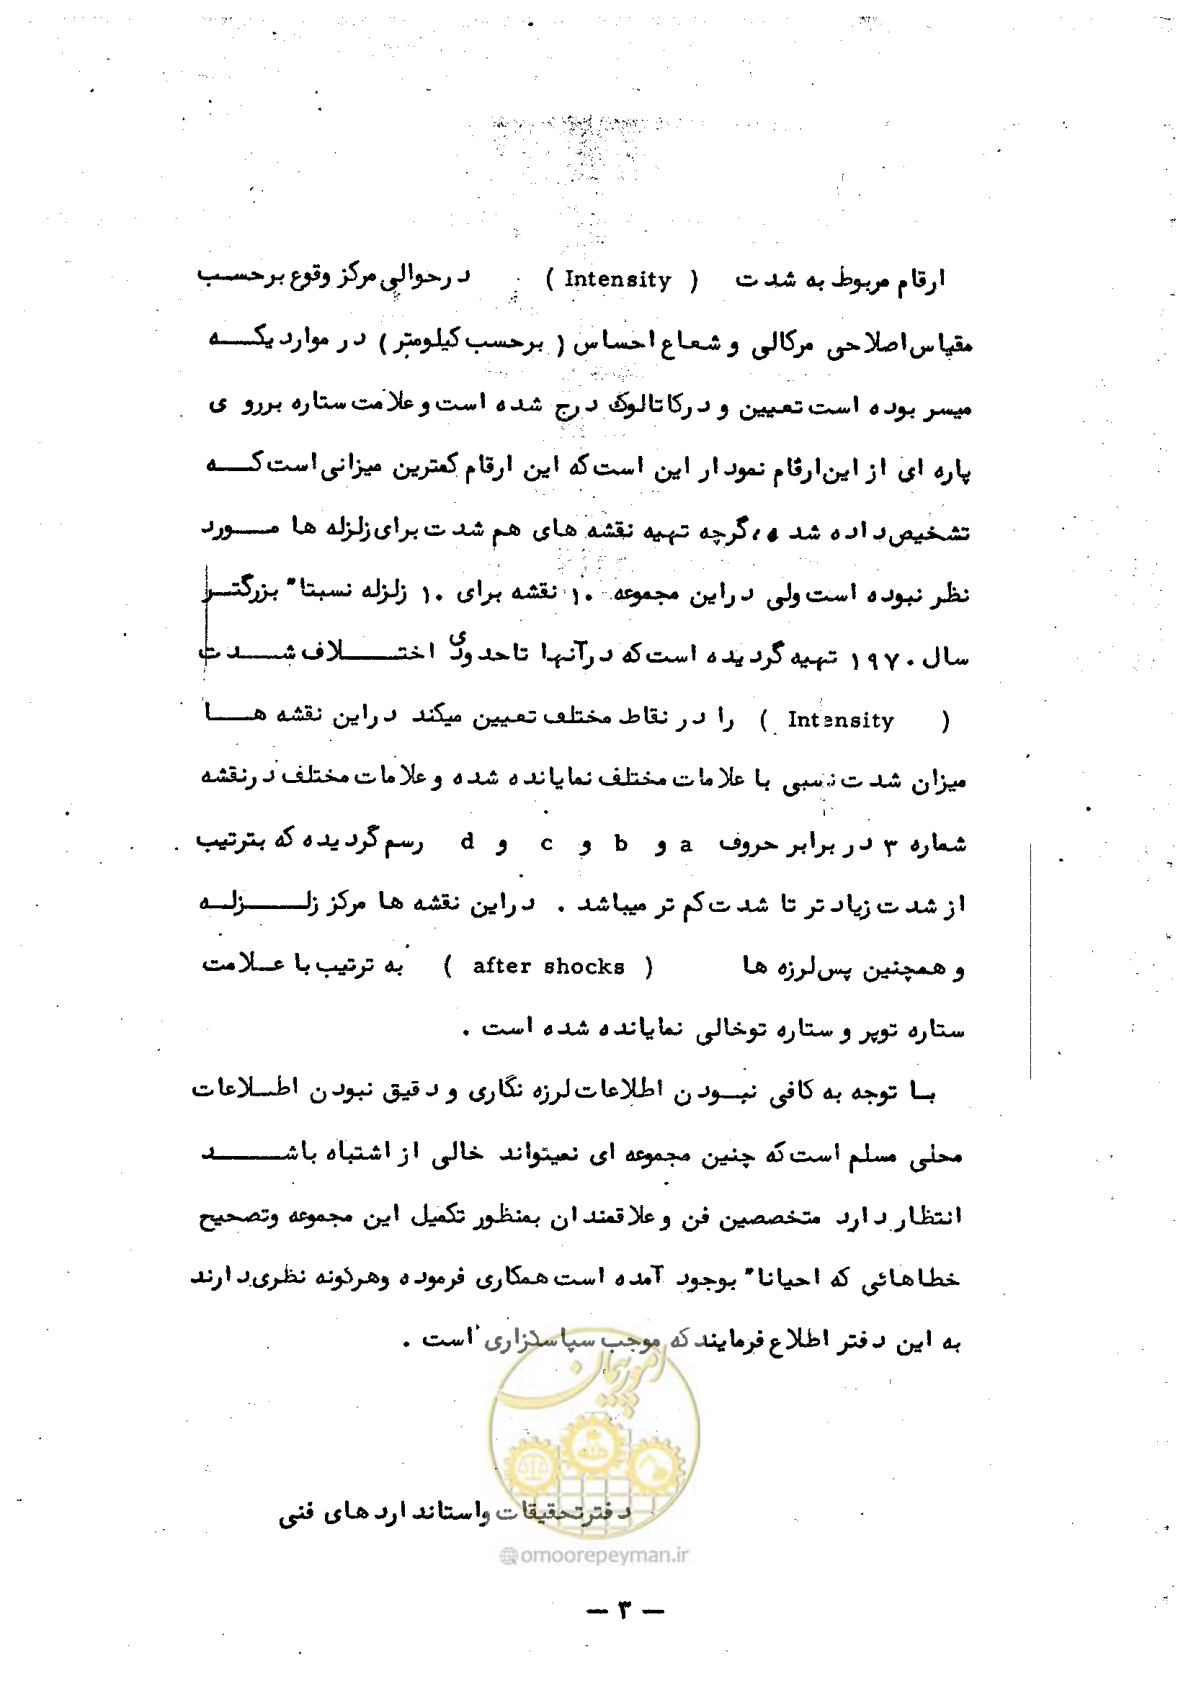 ارقام مربوط به شدت ( Intensity ) درحوالی مرکز وقوع برحسب
مقیاس اصلاحی مرکالی و شعاع احساس ( برحسب کیلومتر ) در مواردیکه
میسر بوده است تعیین و درکاتالوگ درج شده است و علامت ستاره برروی
پاره ای از این ارقام نمودار این است که این ارقام کمترین میزانی است که
تشخیص داده شده ، گرچه تهیه نقشه های هم شدت برای زلزله ها مورد
نظر نبوده است ولی دراین مجموعه ۱۰ نقشه برای ۱۰ زلزله نسبتا" بزرگتر
سال ۱۹۷۰ تهیه گردیده است که درآنها تاحدودی اختلاف شدت
( Intensity ) را در نقاط مختلف تعیین میکند دراین نقشه ها
میزان شدت نسبی با علامات مختلف نمایانده شده و علامات مختلف درنقشه
شماره ۳ در برابر حروف a و b و c و d رسم گردیده که بترتیب
از شدت زیادتر تا شدت کم تر میباشد . دراین نقشه ها مرکز زلزله
و همچنین پس لرزه ها ( after shocks ) به ترتیب با علامت
ستاره توپر و ستاره توخالی نمایانده شده است .
با توجه به کافی نبودن اطلاعات لرزه نگاری و دقیق نبودن اطلاعات
محلی مسلم است که چنین مجموعه ای نمیتواند خالی از اشتباه باشد
انتظار دارد متخصصین فن و علاقمندان بمنظور تکمیل این مجموعه وتصحیح
خطاهائی که احیانا" بوجود آمده است همکاری فرموده وهرگونه نظری دارند
به این دفتر اطلاع فرمایند که موجب سپاسگزاری است .
امور پیمان
دفترتحقیقات واستانداردهای فنی
@omoorepeyman.ir
— ۳ —